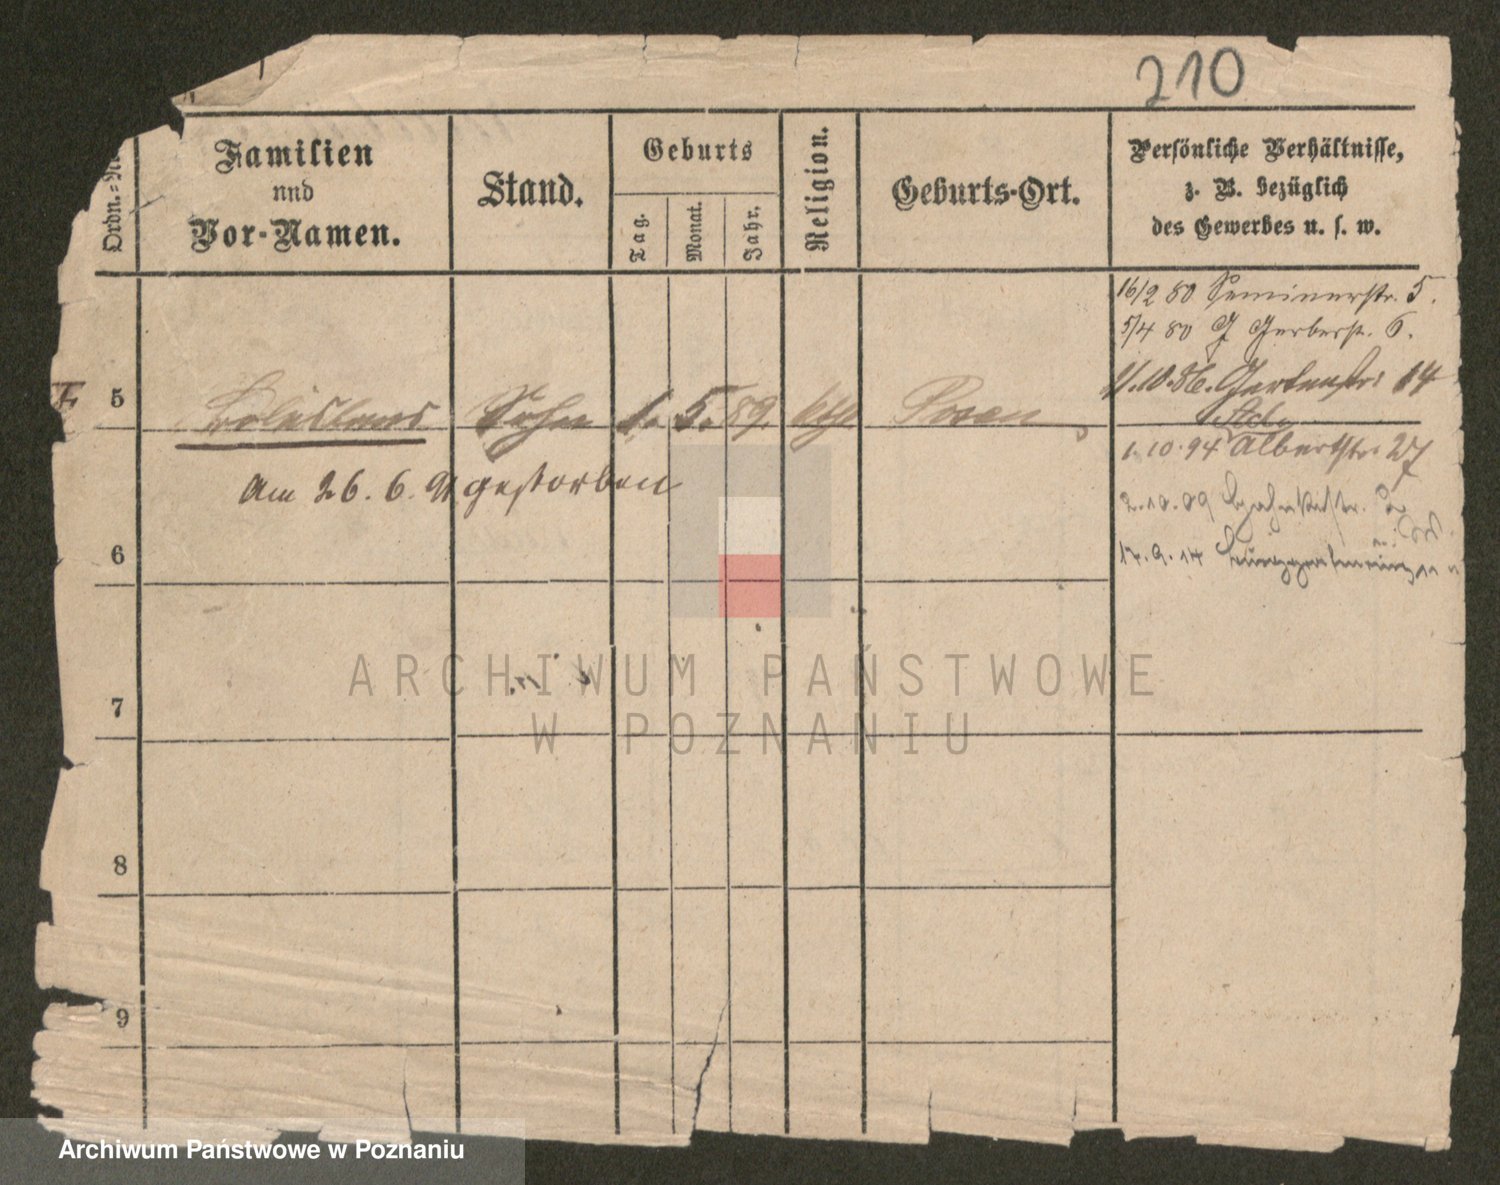 210
Ordn.-N
Familien
und
Vor-Namen.
Stand.
Geburts
Tag.
Monat.
Jahr.
Religion.
Geburts-Ort.
Persönliche Verhältnisse,
z. B. bezüglich
des Gewerbes u. s. w.
16/2 80 Seminarstr. 5.
5/4 80 Gerberstr. 6.
1.10.86. Gartenstr. 14
5 Boleslaus Sohn 1. 5. 89. kath Posen
1.10.94 Albertstr. 27
Am 26. 6. 91 gestorben
2.10.09
6
17.9.14
ARCHIWUM PAŃSTWOWE
W POZNANIU
7
8
9
Archiwum Państwowe w Poznaniu